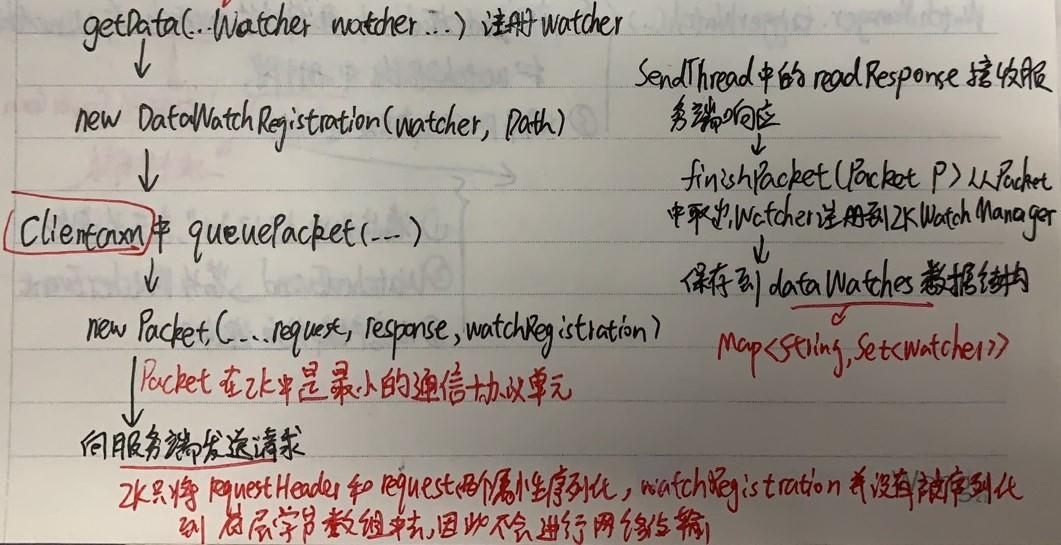 getData(...Watcher watcher...) 注册watcher
new DataWatchRegistration(watcher, Path)
Clientcnxn中 queuePacket(...)
new Packet(....request, response, watchRegistration)
Packet在ZK中是最小的通信协议单元
向服务端发送请求
ZK只将requestHeader和request两个属性序列化，watchRegistration并没有被序列化
到底层字节数组中去,因此不会进行网络传输
SendThread中的readResponse接收服
务端响应
finishPacket(Packet P)从Packet
中取出Watcher注册到ZKWatchManager
保存到dataWatches数据结构
Map<String,Set<Watcher>>